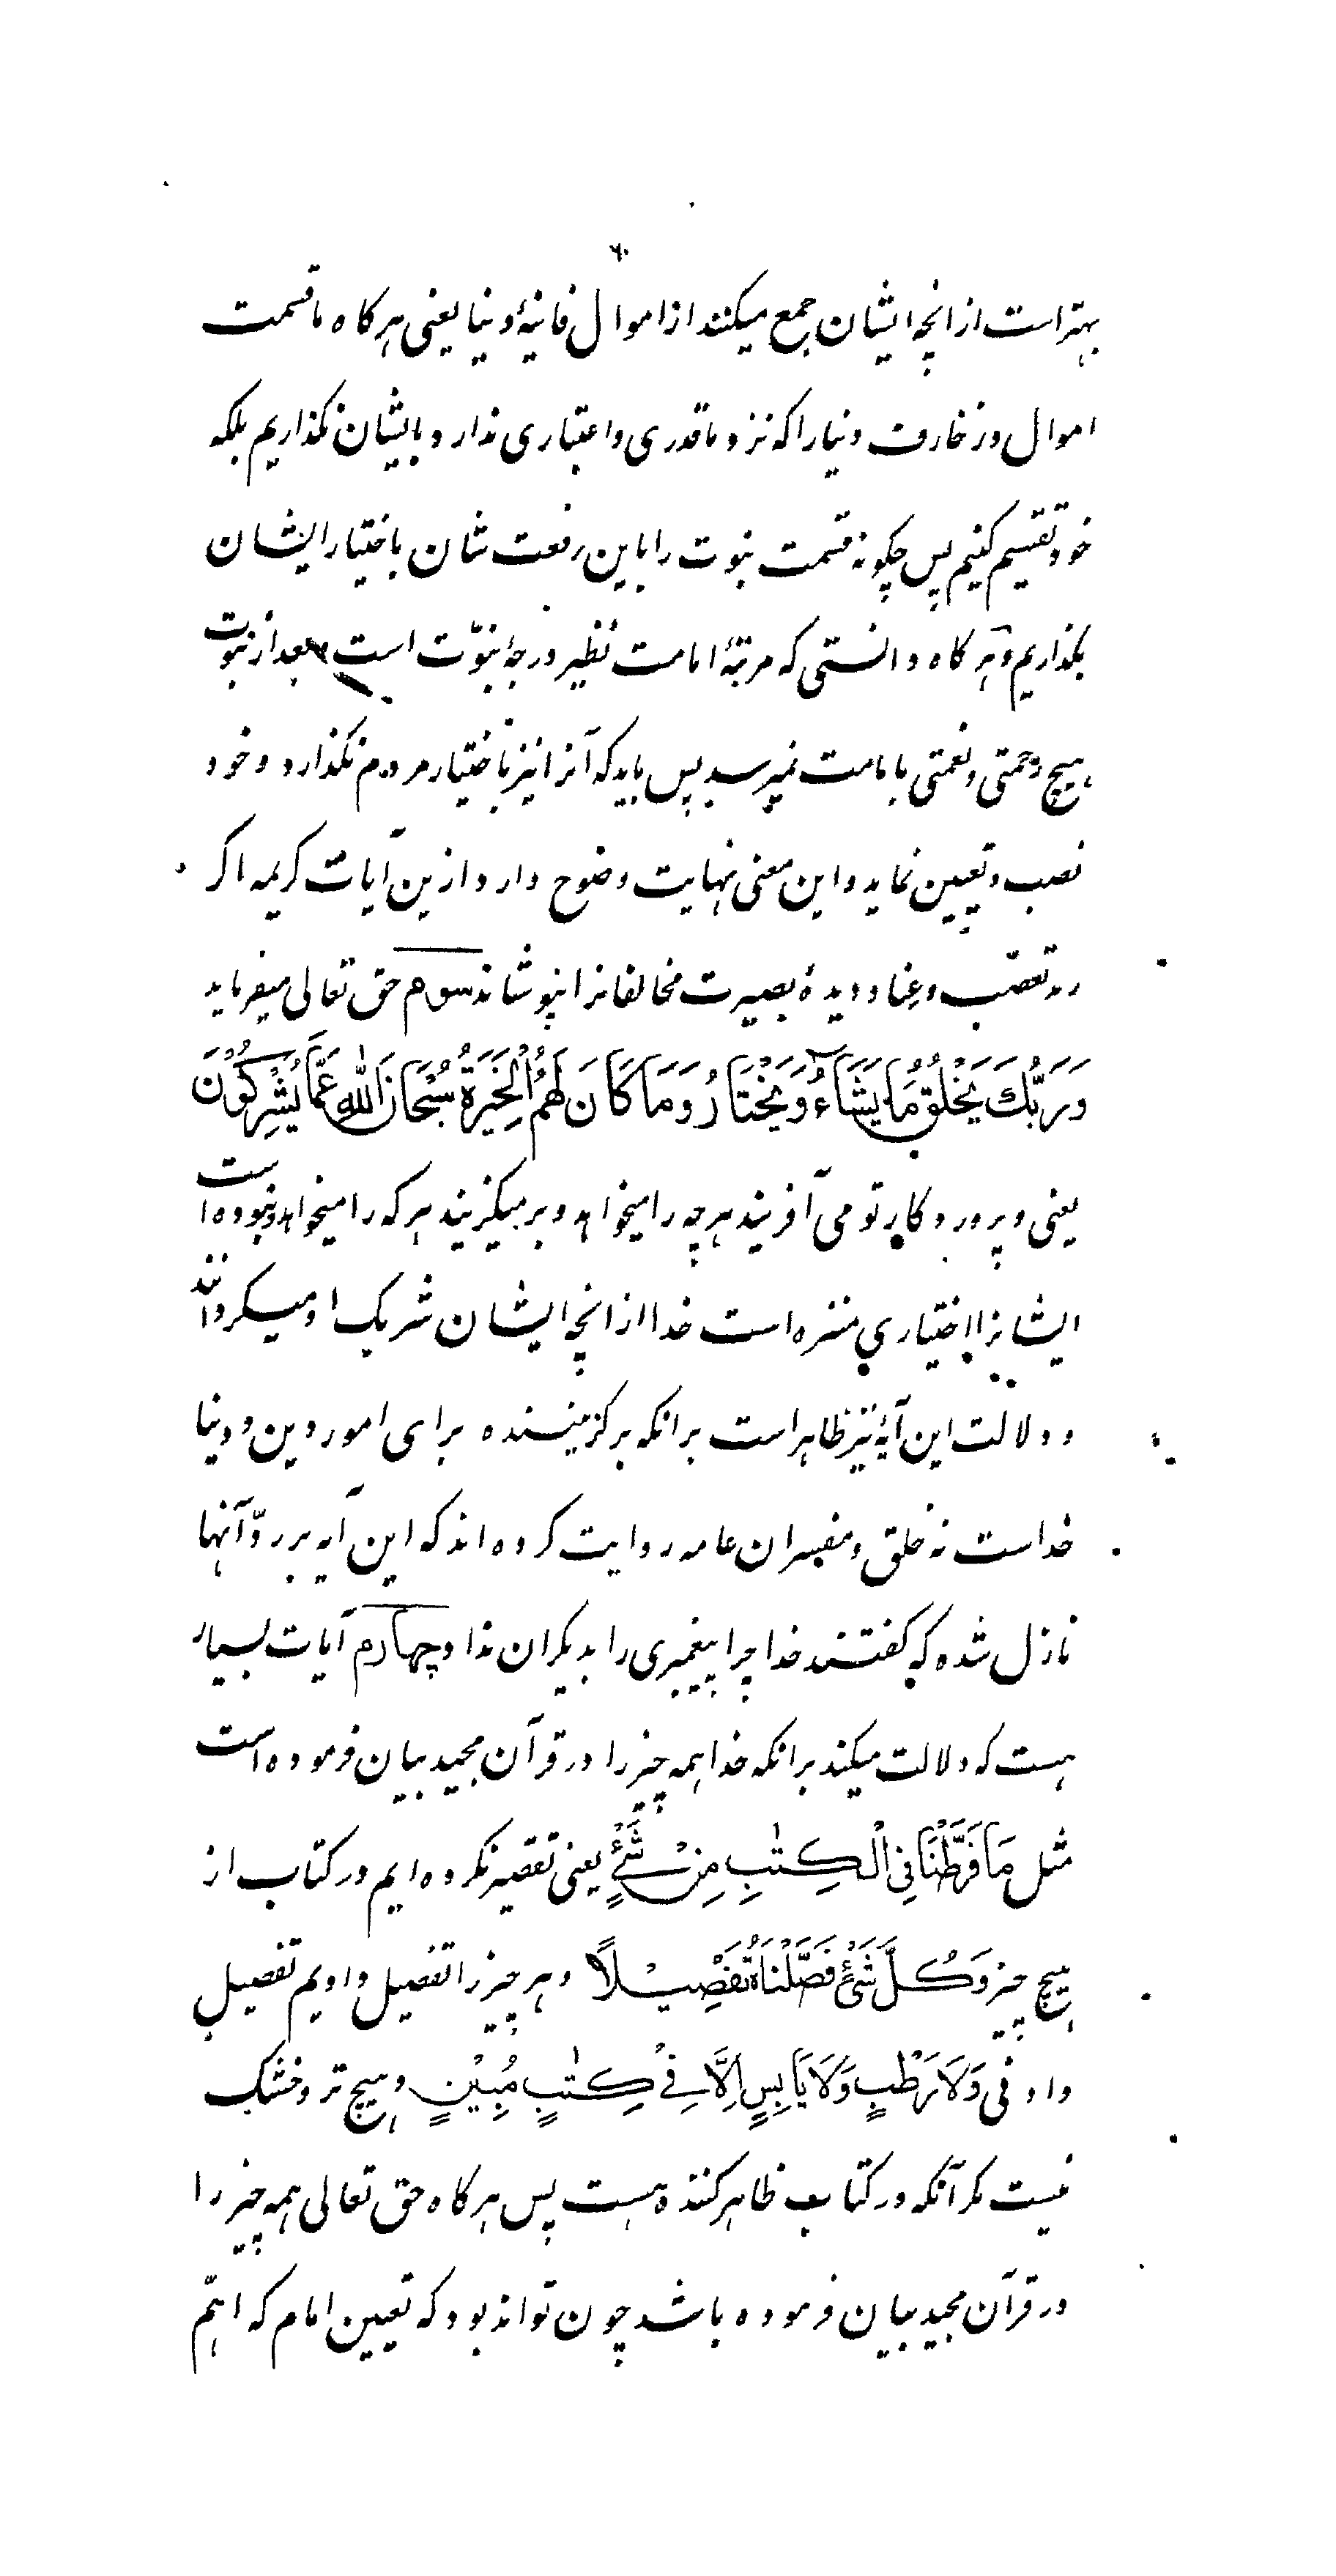 بهتر است از انچه ایشان جمع میکنند از اموال فانیهٔ دنیا یعنی هرکاه ما قسمت
اموال و زخارف دنیا را که نزد ما قدری و اعتباری ندارد بایشان نکذاریم بلکه
خود تقسیم کنیم پس چکونه قسمت نبوت را باین رفعت شان باختیار ایشان
بکذاریم و هرکاه دانستی که مرتبهٔ امامت نظیر درجهٔ نبوّت است و بعد از نبوت
هیچ رحمتی و نعمتی بامامت نمیرسد پس باید که آنرا نیز باختیار مردم نکذارد و خود
نصب و تعیین نماید و این معنی نهایت وضوح دارد ازین آیات کریمه اکر
رمد تعصّب و عناد دیدهٔ بصیرت مخالفانرا نپوشاند سوم حق تعالی میفرماید
وَرَبُّكَ يَخْلُقُ مَا يَشَاءُ وَيَخْتَارُ وَمَا كَانَ لَهُمُ الْخِيَرَةُ سُبْحَانَ اللهِ عَمَّا يُشْرِكُوْنَ
یعنی و پروردکار تو می آفریند هرچه را میخواهد و بر میکزیند هرکه را میخواهد و نبوده است
ایشانرا اختیاری منزه است خدا از انچه ایشان شریک او میکردانند
و دلالت این آیهٔ نیز ظاهر است برانکه برکزیننده برای امور دین و دنیا
خداست نه خلق و مفسران عامه روایت کرده اند که این آیه بر ردّ آنها
نازل شده که کفتند خدا چرا پیغمبری را بدیکران نداد چهارم آیات بسیار
هست که دلالت میکند برانکه خدا همه چیز را در قرآن مجید بیان فرموده است
مثل مَا فَرَّطْنَا فِي الْكِتٰبِ مِنْ شَيْءٍ یعنی تقصیر نکرده ایم در کتاب از
هیچ چیز وَكُلَّ شَيْءٍ فَصَّلْنَاهُ تَفْصِيْلًا و هر چیز را تفصیل دادیم تفصیل
دادنی وَلَا رَطْبٍ وَلَا يَابِسٍ اِلَّا فِي كِتٰبٍ مُبِيْنٍ و هیچ تر و خشک
نیست مکر آنکه در کتاب ظاهر کننده هست پس هرکاه حق تعالی همه چیز را
در قرآن مجید بیان فرموده باشد چون تواند بود که تعیین امام که اهمّ